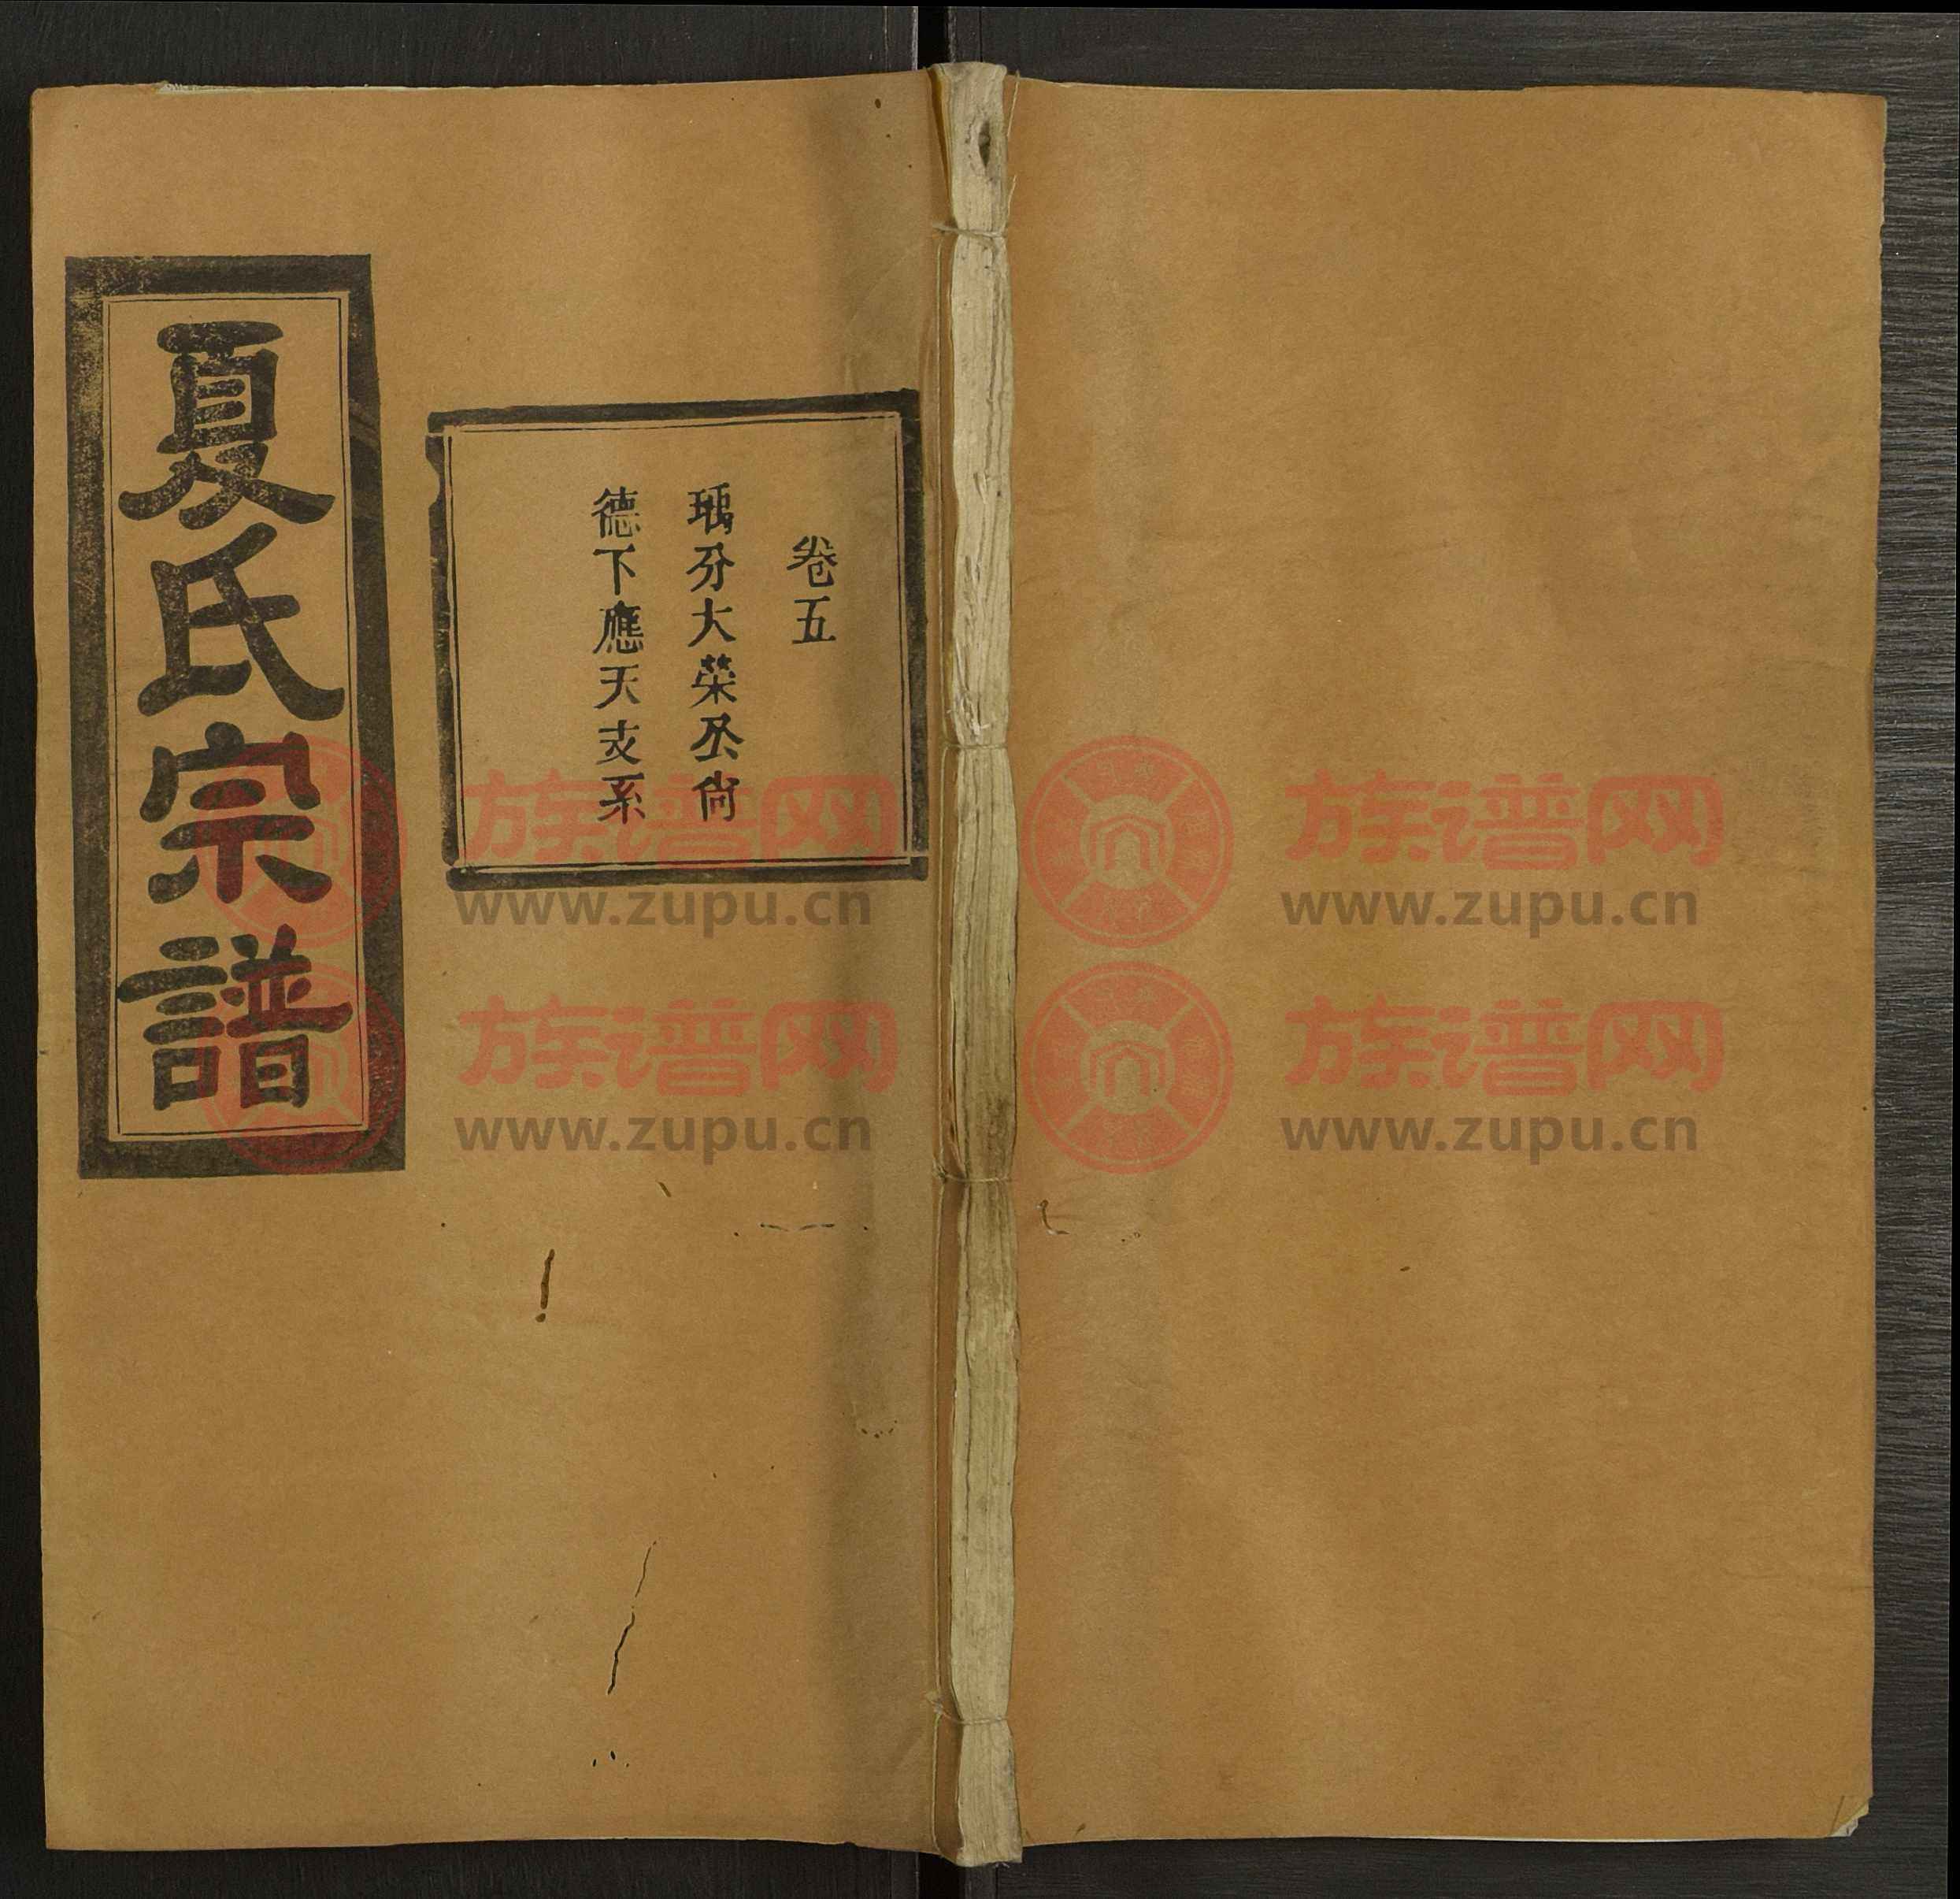 夏氏宗譜
卷五
瑀分大荣丞尚
德下應天支系
族谱网
www.zupu.cn
族谱网
www.zupu.cn
族谱网
www.zupu.cn
族谱网
www.zupu.cn